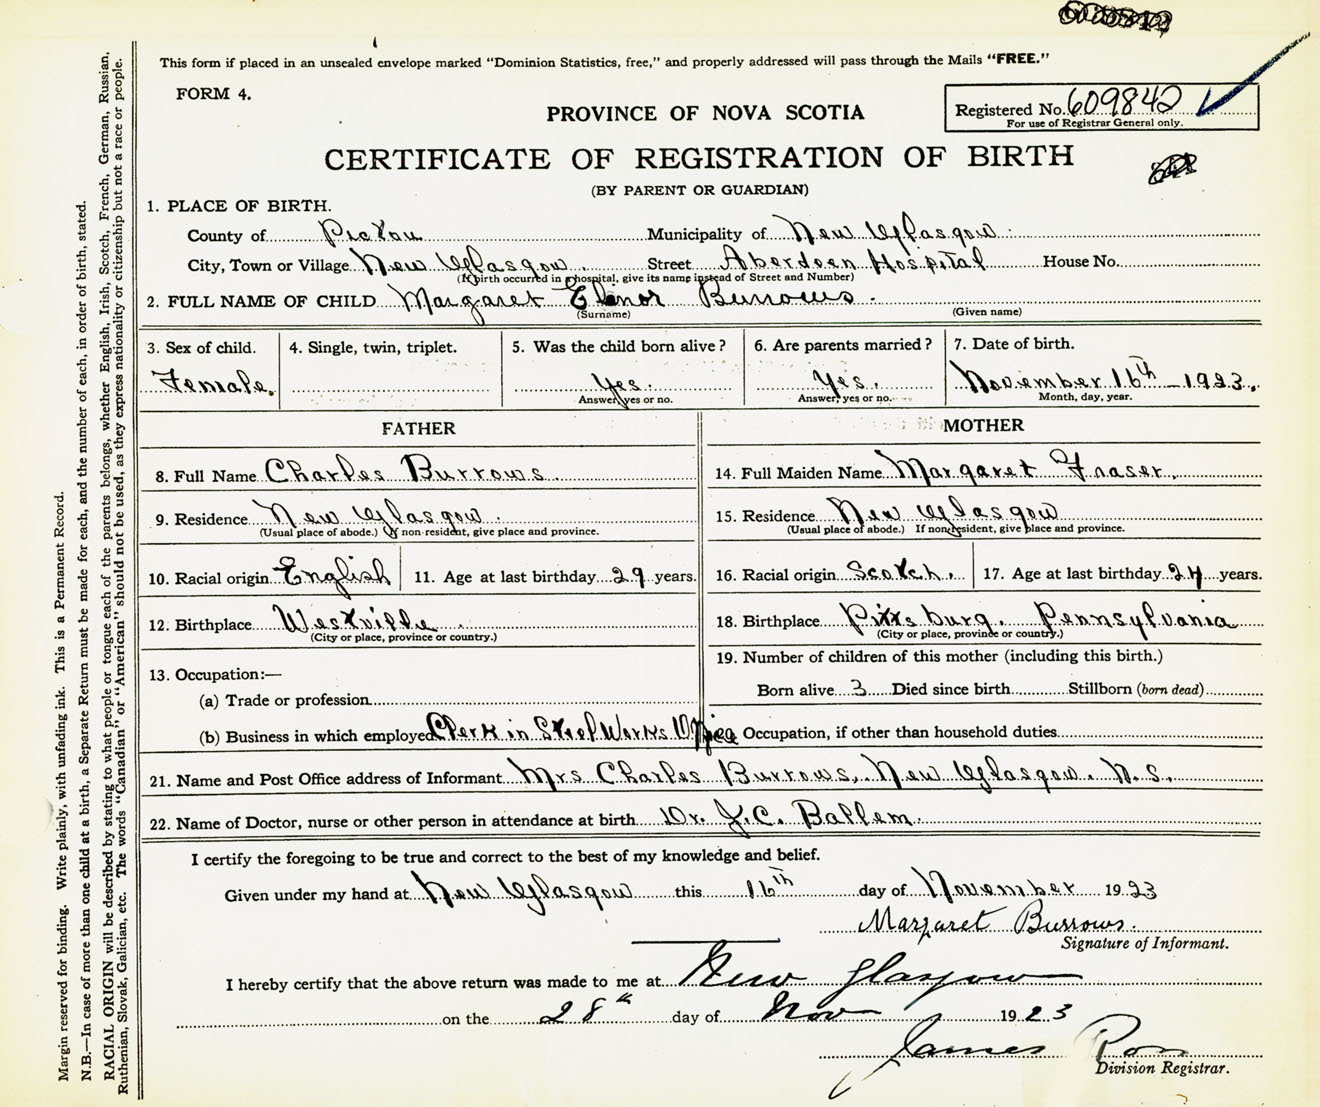 This form if placed in an unsealed envelope marked "Dominion Statistics, free," and properly addressed will pass through the Mails "FREE."
FORM 4.
PROVINCE OF NOVA SCOTIA
Registered No. 609842
For use of Registrar General only.
CERTIFICATE OF REGISTRATION OF BIRTH
(BY PARENT OR GUARDIAN)
1. PLACE OF BIRTH.
County of Pictou Municipality of New Glasgow
City, Town or Village New Glasgow. Street Aberdeen Hospital House No.
(If birth occurred in hospital, give its name instead of Street and Number)
2. FULL NAME OF CHILD Margaret Elinor Burrows.
(Surname) (Given name)
3. Sex of child. 4. Single, twin, triplet. 5. Was the child born alive? 6. Are parents married? 7. Date of birth.
Female. Yes. Yes. November 16th - 1923.
Answer, yes or no. Answer, yes or no. Month, day, year.
FATHER MOTHER
8. Full Name Charles Burrows. 14. Full Maiden Name Margaret Fraser.
9. Residence New Glasgow. 15. Residence New Glasgow
(Usual place of abode.) If non-resident, give place and province. (Usual place of abode.) If non-resident, give place and province.
10. Racial origin English 11. Age at last birthday 29 years. 16. Racial origin Scotch. 17. Age at last birthday 24 years.
12. Birthplace Westville. 18. Birthplace Pittsburg, Pennsylvania
(City or place, province or country.) (City or place, province or country.)
19. Number of children of this mother (including this birth.)
13. Occupation:—
Born alive 3 Died since birth Stillborn (born dead)
(a) Trade or profession
(b) Business in which employed Clerk in Steel Works Office Occupation, if other than household duties
21. Name and Post Office address of Informant Mrs Charles Burrows, New Glasgow. N.S.
22. Name of Doctor, nurse or other person in attendance at birth Dr. J.C. Ballem.
I certify the foregoing to be true and correct to the best of my knowledge and belief.
Given under my hand at New Glasgow this 16th day of November 1923
Margaret Burrows.
Signature of Informant.
I hereby certify that the above return was made to me at New Glasgow
on the 28th day of Nov 1923
James Ross
Division Registrar.
Margin reserved for binding. Write plainly, with unfading ink. This is a Permanent Record.
N.B.—In case of more than one child at a birth, a Separate Return must be made for each, and the number of each, in order of birth, stated.
RACIAL ORIGIN will be described by stating to what people or tongue each of the parents belongs, whether English, Irish, Scotch, French, German, Russian,
Ruthenian, Slovak, Galician, etc. The words "Canadian" or "American" should not be used, as they express nationality or citizenship but not a race or people.